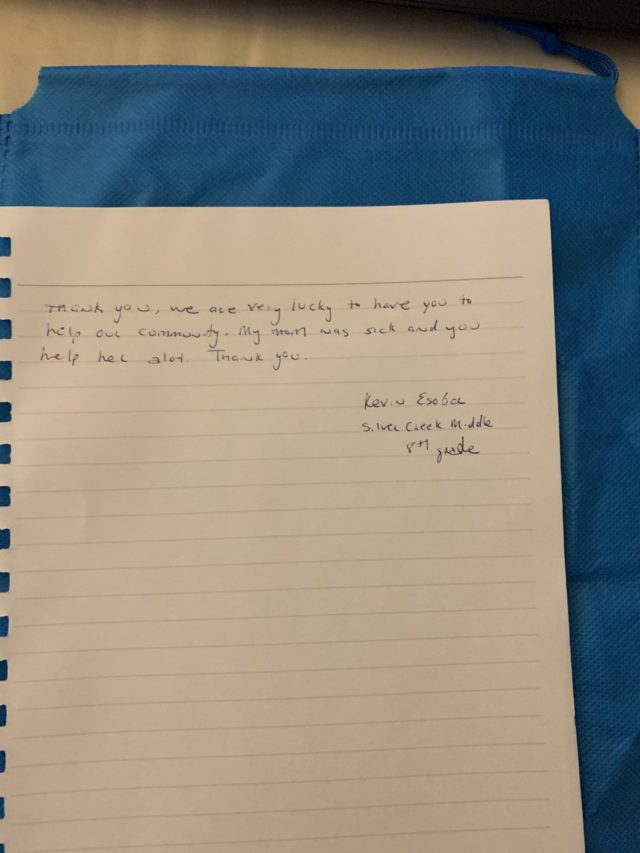 Thank you, we are very lucky to have you to
help our community. My mom was sick and you
help her alot. Thank you.
Kevin Esobar
Silver Creek Middle
8th grade